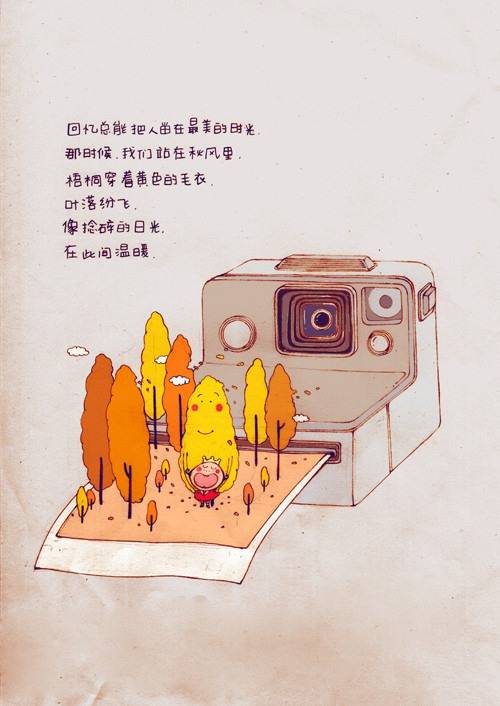 回忆总能把人留在最美的时光.
那时候.我们站在秋风里.
梧桐穿着黄色的毛衣.
叶落纷飞.
像捻碎的日光.
在此间温暖.